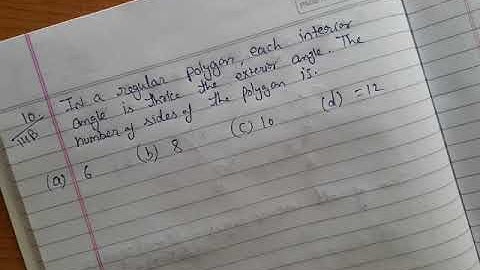 10. In a regular polygon, each interior
angle is thrice the exterior angle. The
number of sides of the polygon is.
(a) 6 (b) 8 (c) 10 (d) = 12